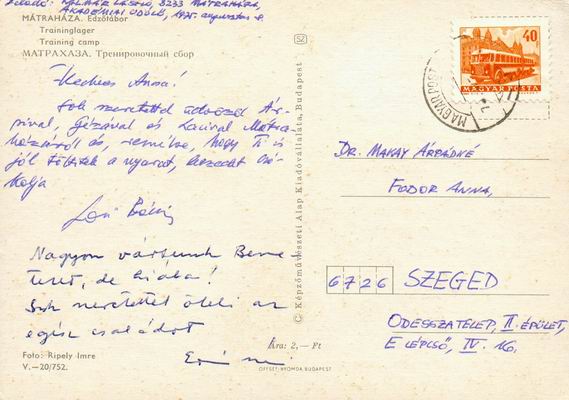 Feladó: KALMÁR LÁSZLÓ, 3233 MÁTRAHÁZA,
AKADÉMIAI ÜDÜLŐ, 1975. augusztus 8.
MÁTRAHÁZA. Edzőtábor
Traininglager
Training camp
МАТРАХАЗА. Тренировочный сбор
Kedves Anna!
Sok szeretettel üdvözöl Ár-
pival, Gézával és Lacival Mátra-
házáról és, remélve, hogy Ti is
jól töltitek a nyarat, kezedet csó-
kolja
Laci Bácsi
Nagyon vártunk Benne-
teket, de hiába!
Sok szeretettel öleli az
egész családot
Foto: Ripely Imre
V.—20/752.
52
© Képzőművészeti Alap Kiadóvállalata, Budapest
Ára: 2,— Ft
OFFSET-NYOMDA BUDAPEST
40
MAGYAR POSTA
DR. MAKAY ÁRPÁDNÉ
FODOR ANNA,
6726 SZEGED
ODESSZATELEP, II. ÉPÜLET,
E LÉPCSŐ, IV. 16.